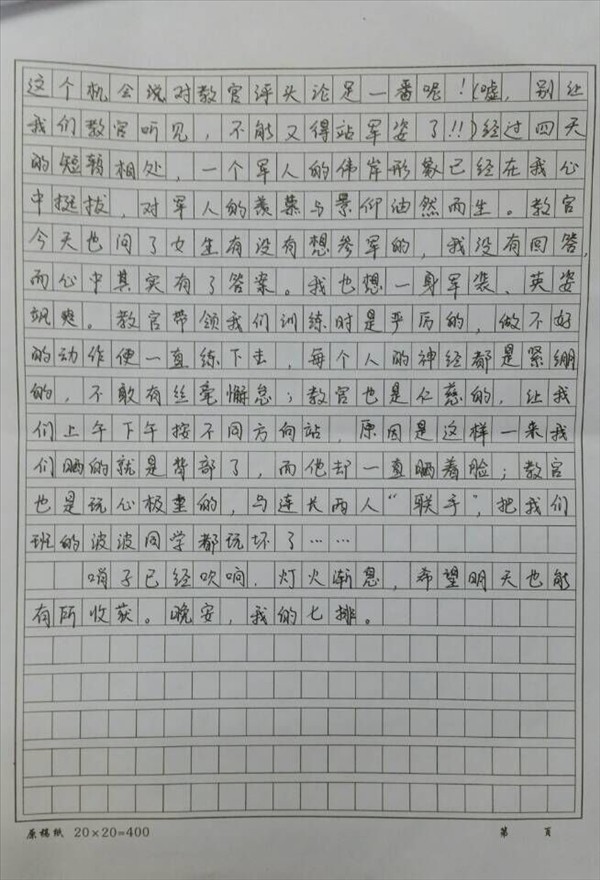 这个机会说对教官评头论足一番呢！(嘘，别让
我们教官听见，不能又得站军姿了!!)经过四天
的短暂相处，一个军人的伟岸形象已经在我心
中挺拔，对军人的羡慕与景仰油然而生。教官
今天也问了女生有没有想参军的，我没有回答，
而心中其实有了答案。我也想一身军装、英姿
飒爽。教官带领我们训练时是严厉的，做不好
的动作便一直练下去，每个人的神经都是紧绷
的，不敢有丝毫懈怠；教官也是仁慈的，让我
们上午下午按不同方向站，原因是这样一来我
们晒的就是背部了，而他却一直晒着脸；教官
也是玩心极重的，与连长两人“联手”，把我们
班的波波同学都玩坏了……
哨子已经吹响，灯火渐息，希望明天也能
有所收获。晚安，我的七排。
原稿纸 20×20=400 第 页